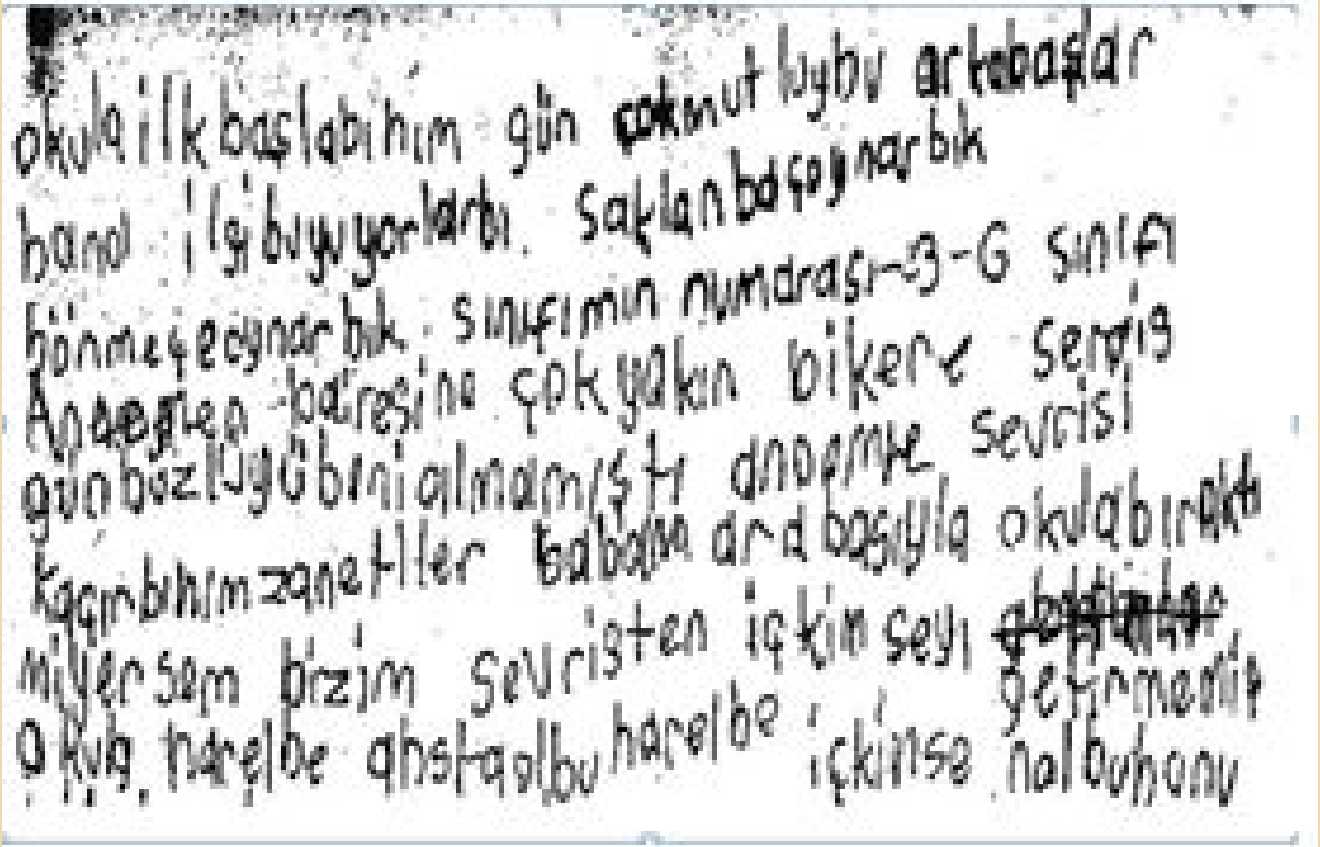 okula ilk başlabıhım gün çokmutluybu artobaşlar
bana ilgi bıyuyorlarbı. Saklanbaçoynarbık
bönmeçeoynarbık. sınıfımın numarası-3-G sınıfı
bairesine çokyakın bikere
günbüzlüyübenialmamıştı sevrisi
kaçırbıhımzanettiler babam arabasıyla okulabıraktı
milyersem bizim sevristen içkimseyi
okula. harelbe ahstaolbu harelbe içkimse nalbuhonu getirmemiş